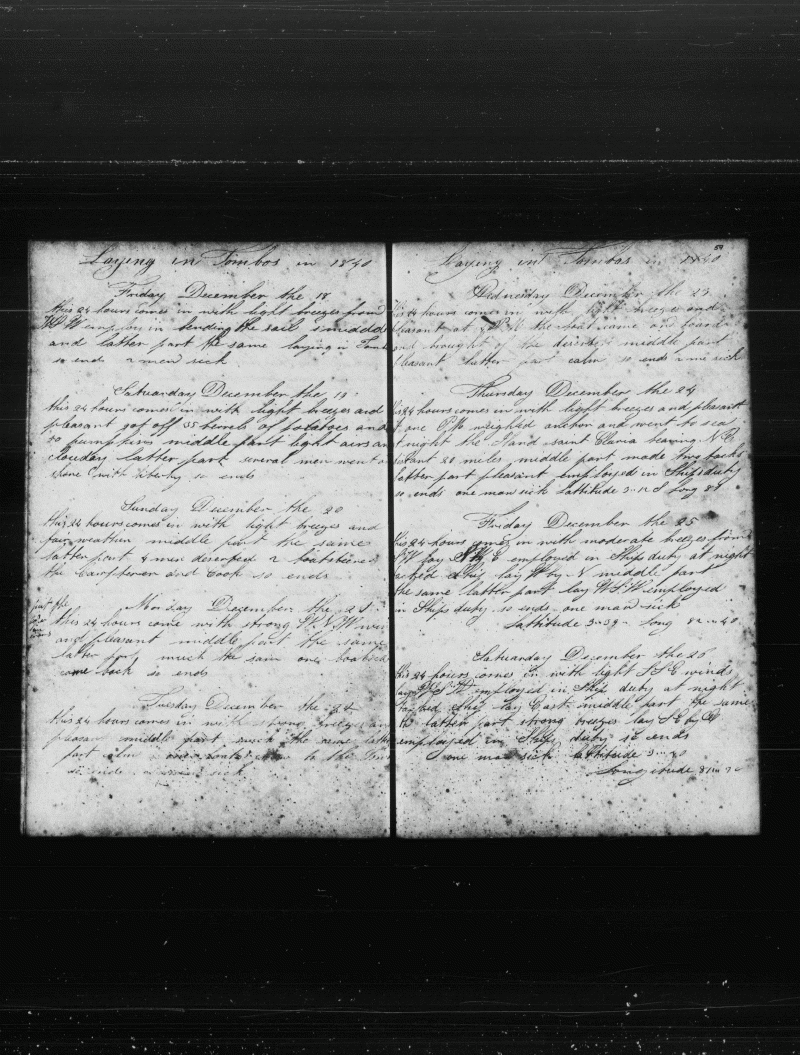 Laying in Tombos in 1840
Friday December the 18
this 24 hours comes in with light breezes from
employ in bending the sail s middle
and latter part the same laying in Tombos
so ends 2 men sick
Satuarday December the 19
this 24 hours comes in with light breezes and
pleasant got off 55 berrels of potatoes and
50 pumpkins middle part light airs and
clouday latter park several men went on
shore with liberty so ends
Sunday December the 20
this 24 hours comes in with light breezes and
fair weather middle part the same
latter part 4 men deserted 2 boatsteers
the Carpterner and Cook so ends
Monday December the 21
this 24 hours come with strong W N W win
and pleasant middle part the same
latter part much the sam one boatstee
came back so ends
Tuesday December the 22
this 24 hours comes in with strong breezes and
pleasan middle part much the same latter
part calm
so ends sick
59
Laying in Tombas in 1840
Wednesday December the 23
his 24 hours comes in with light breezes and
pleasant at PM the boat came on board
and brought of the deserters middle part
pleasant latter part calm so ends one sick
Thursday December the 24
his 24 hours comes in with light breezes and pleasant
at one PM weighed anchor and went to sea
at night the Iland saint Claria bearing N E
distant 20 miles middle part made two tacks
latter part pleasant employed in Ships duty
so ends one man sick Lattitude 3-12 S Long 81
Friday December the 25
his 24 hours comes in with moderate breezes from
employed in Ships duty at night
lay W by N middle part
the same latter part lay W S W employed
in Ships duty so ends one man sick
Lattitude 3-39 Long 82 - 40
Satuarday December the 26
his 24 hours comes in with light S S E winds
employed in Ship duty at night
ship lay East middle part the same
the latter part strong breezes lay S E by E
employed in Ship duty so ends
one man sick lattitude 3
Longitude 81